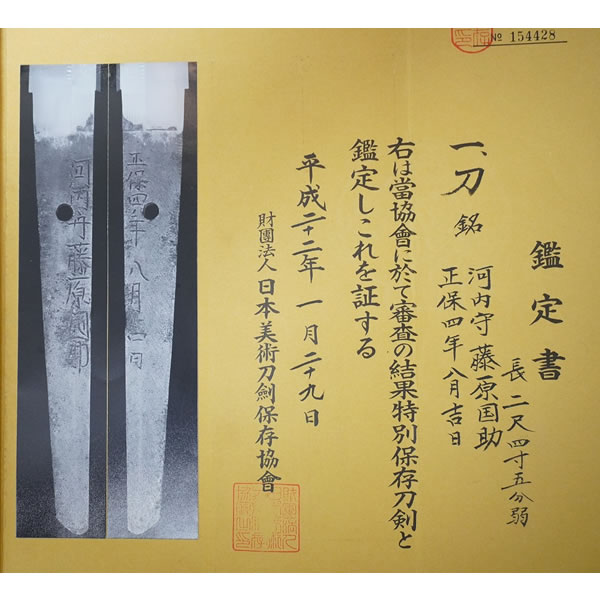 № 154428
鑑定書
一、刀 銘 河内守藤原国助
正保四年八月吉日
長二尺四寸五分弱
右は當協會に於て審査の結果特別保存刀剣と
鑑定しこれを証する
平成二十二年一月二十九日
財團法人日本美術刀劍保存協會
正保四年八月吉日
河内守藤原国助